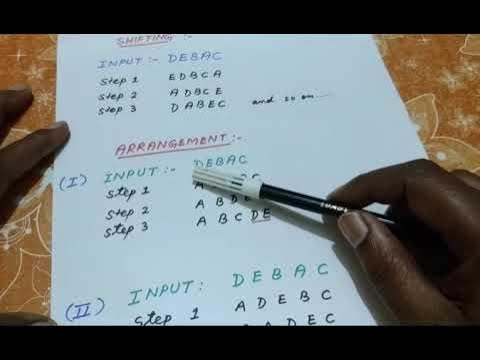 SHIFTING :-
INPUT :- DEBAC
Step 1 EDBCA
Step 2 ADBCE
Step 3 DABEC and so on....
ARRANGEMENT:-
(I) INPUT :- DEBAC
Step 1 A
Step 2 A B D
Step 3 A B C D E
(II) INPUT: D E B A C
Step 1 A D E B C
D E C